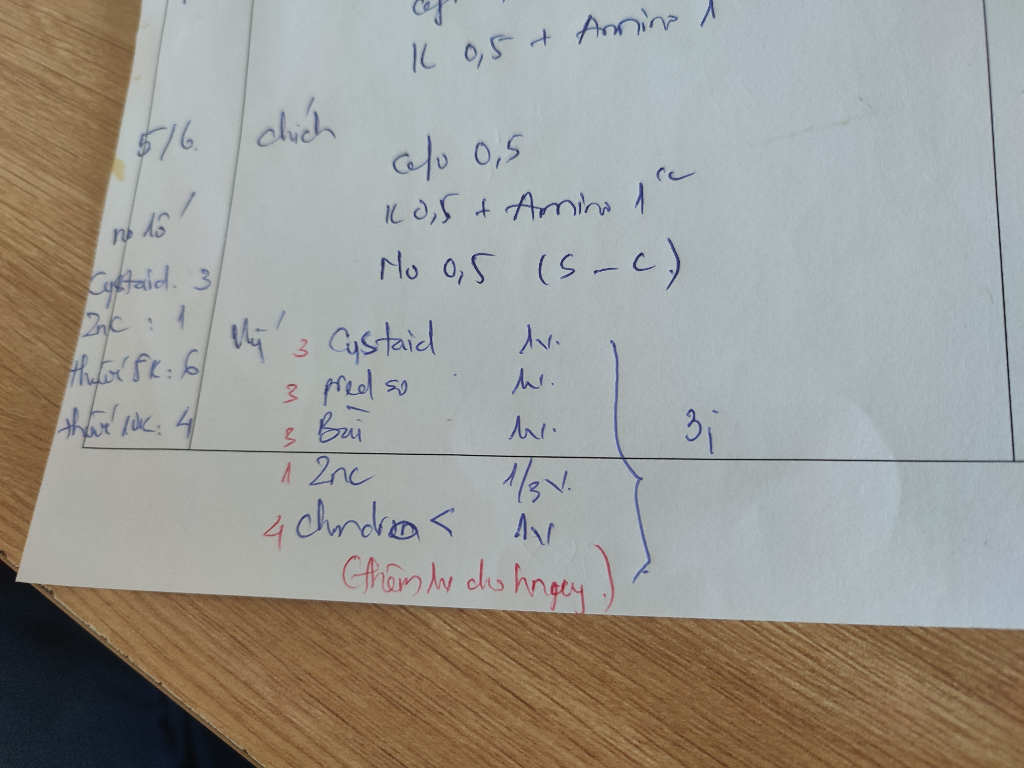 K 0,5 + Amino 1
5/6. chích
cefo 0,5
K 0,5 + Amino 1cc
No 0,5 (S - C)
nợ lô
Cystaid. 3
ZnC : 1
thuốc 5K: 6
thuốc 10K: 4
Mỹ 3 Cystaid 1v.
3 pred so 1v.
3 Bài 1v.
1 ZnC 1/3 v.
4 1v
3j
(thêm 1v cho 1 ngày)